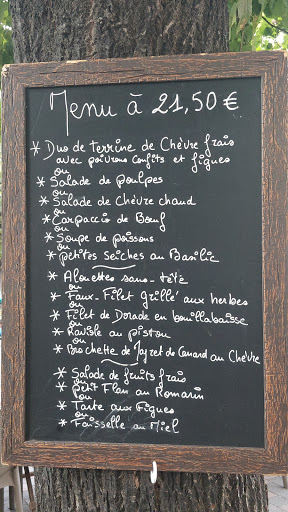 Menu à 21,50 €
* Duo de terrine de Chèvre frais
avec poivrons confits et figues
ou
* Salade de poulpes
ou
* Salade de Chèvre chaud
ou
* Carpaccio de Bœuf
ou
* Soupe de poissons
ou
* petites Seiches au Basilic
* Alouettes sans-tête
ou
* Faux-Filet Grillé aux herbes
ou
* Filet de Dorade en bouillabaisse
ou
* Raviole au pistou
ou
* Brochette de Magret de Canard au Chèvre
* Salade de fruits frais
ou
* petit Flan au Romarin
ou
* Tarte aux Figues
ou
* Faisselle au Miel